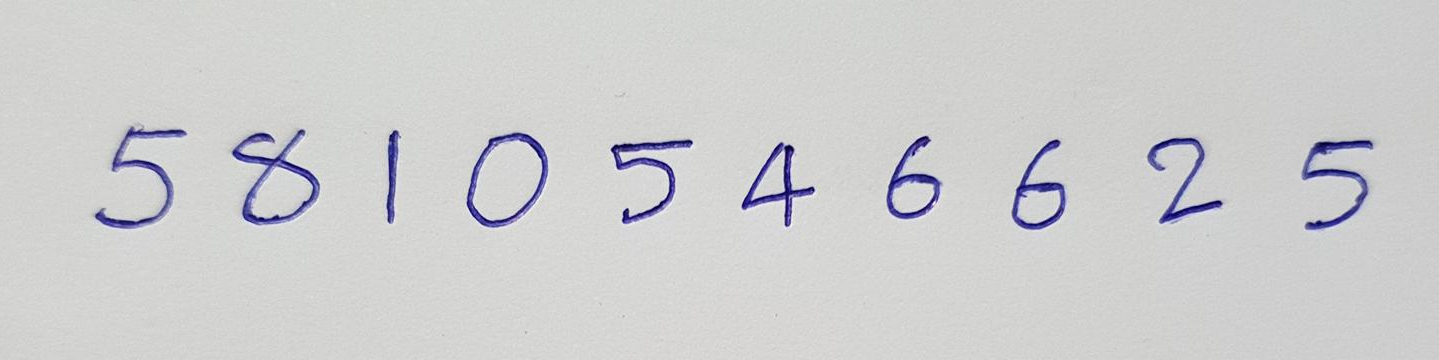 5 8 1 0 5 4 6 6 2 5